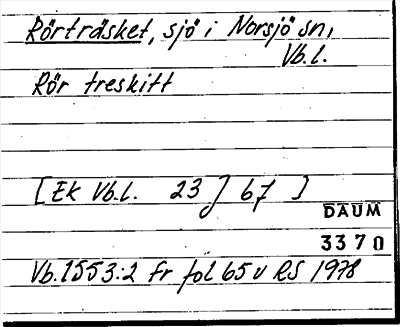 Rörträsket, sjö i Norsjö sn,
Vb.l.
Rör treskitt
[Ek Vb.l. 23 J 67 ]
DAUM
3370
Vb. 1553:2 fr fol 65 v RS 1978